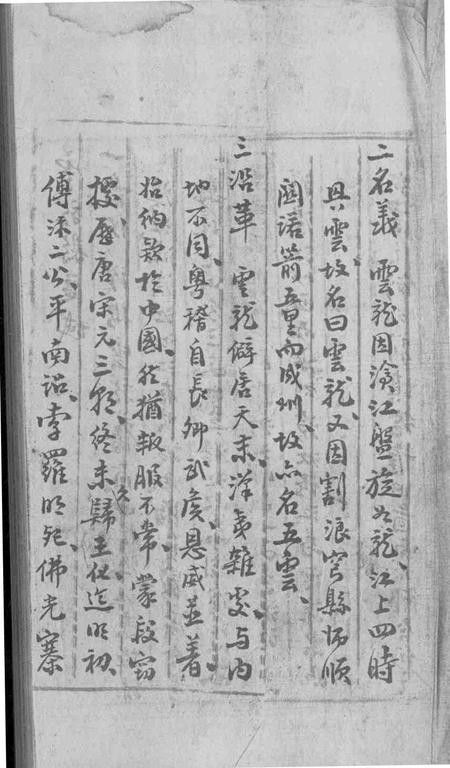 二名義 雲龍因滄江盤旋如龍、江上四時
興雲、故名曰雲龍、又因割浪穹縣師順
關諾箭五里而成州、故亦名五雲、
三沿革 雲龍僻居天末、漢夷雜處、与內
地不同、粵稽自長卿武侯、恩威並著、
始納款於中國、然猶叛服不常、蒙段竊
據、歷唐宋元三朝、終未歸王化、迄明初、
傅沐二公、平南詔、李羅明乾、佛光寨